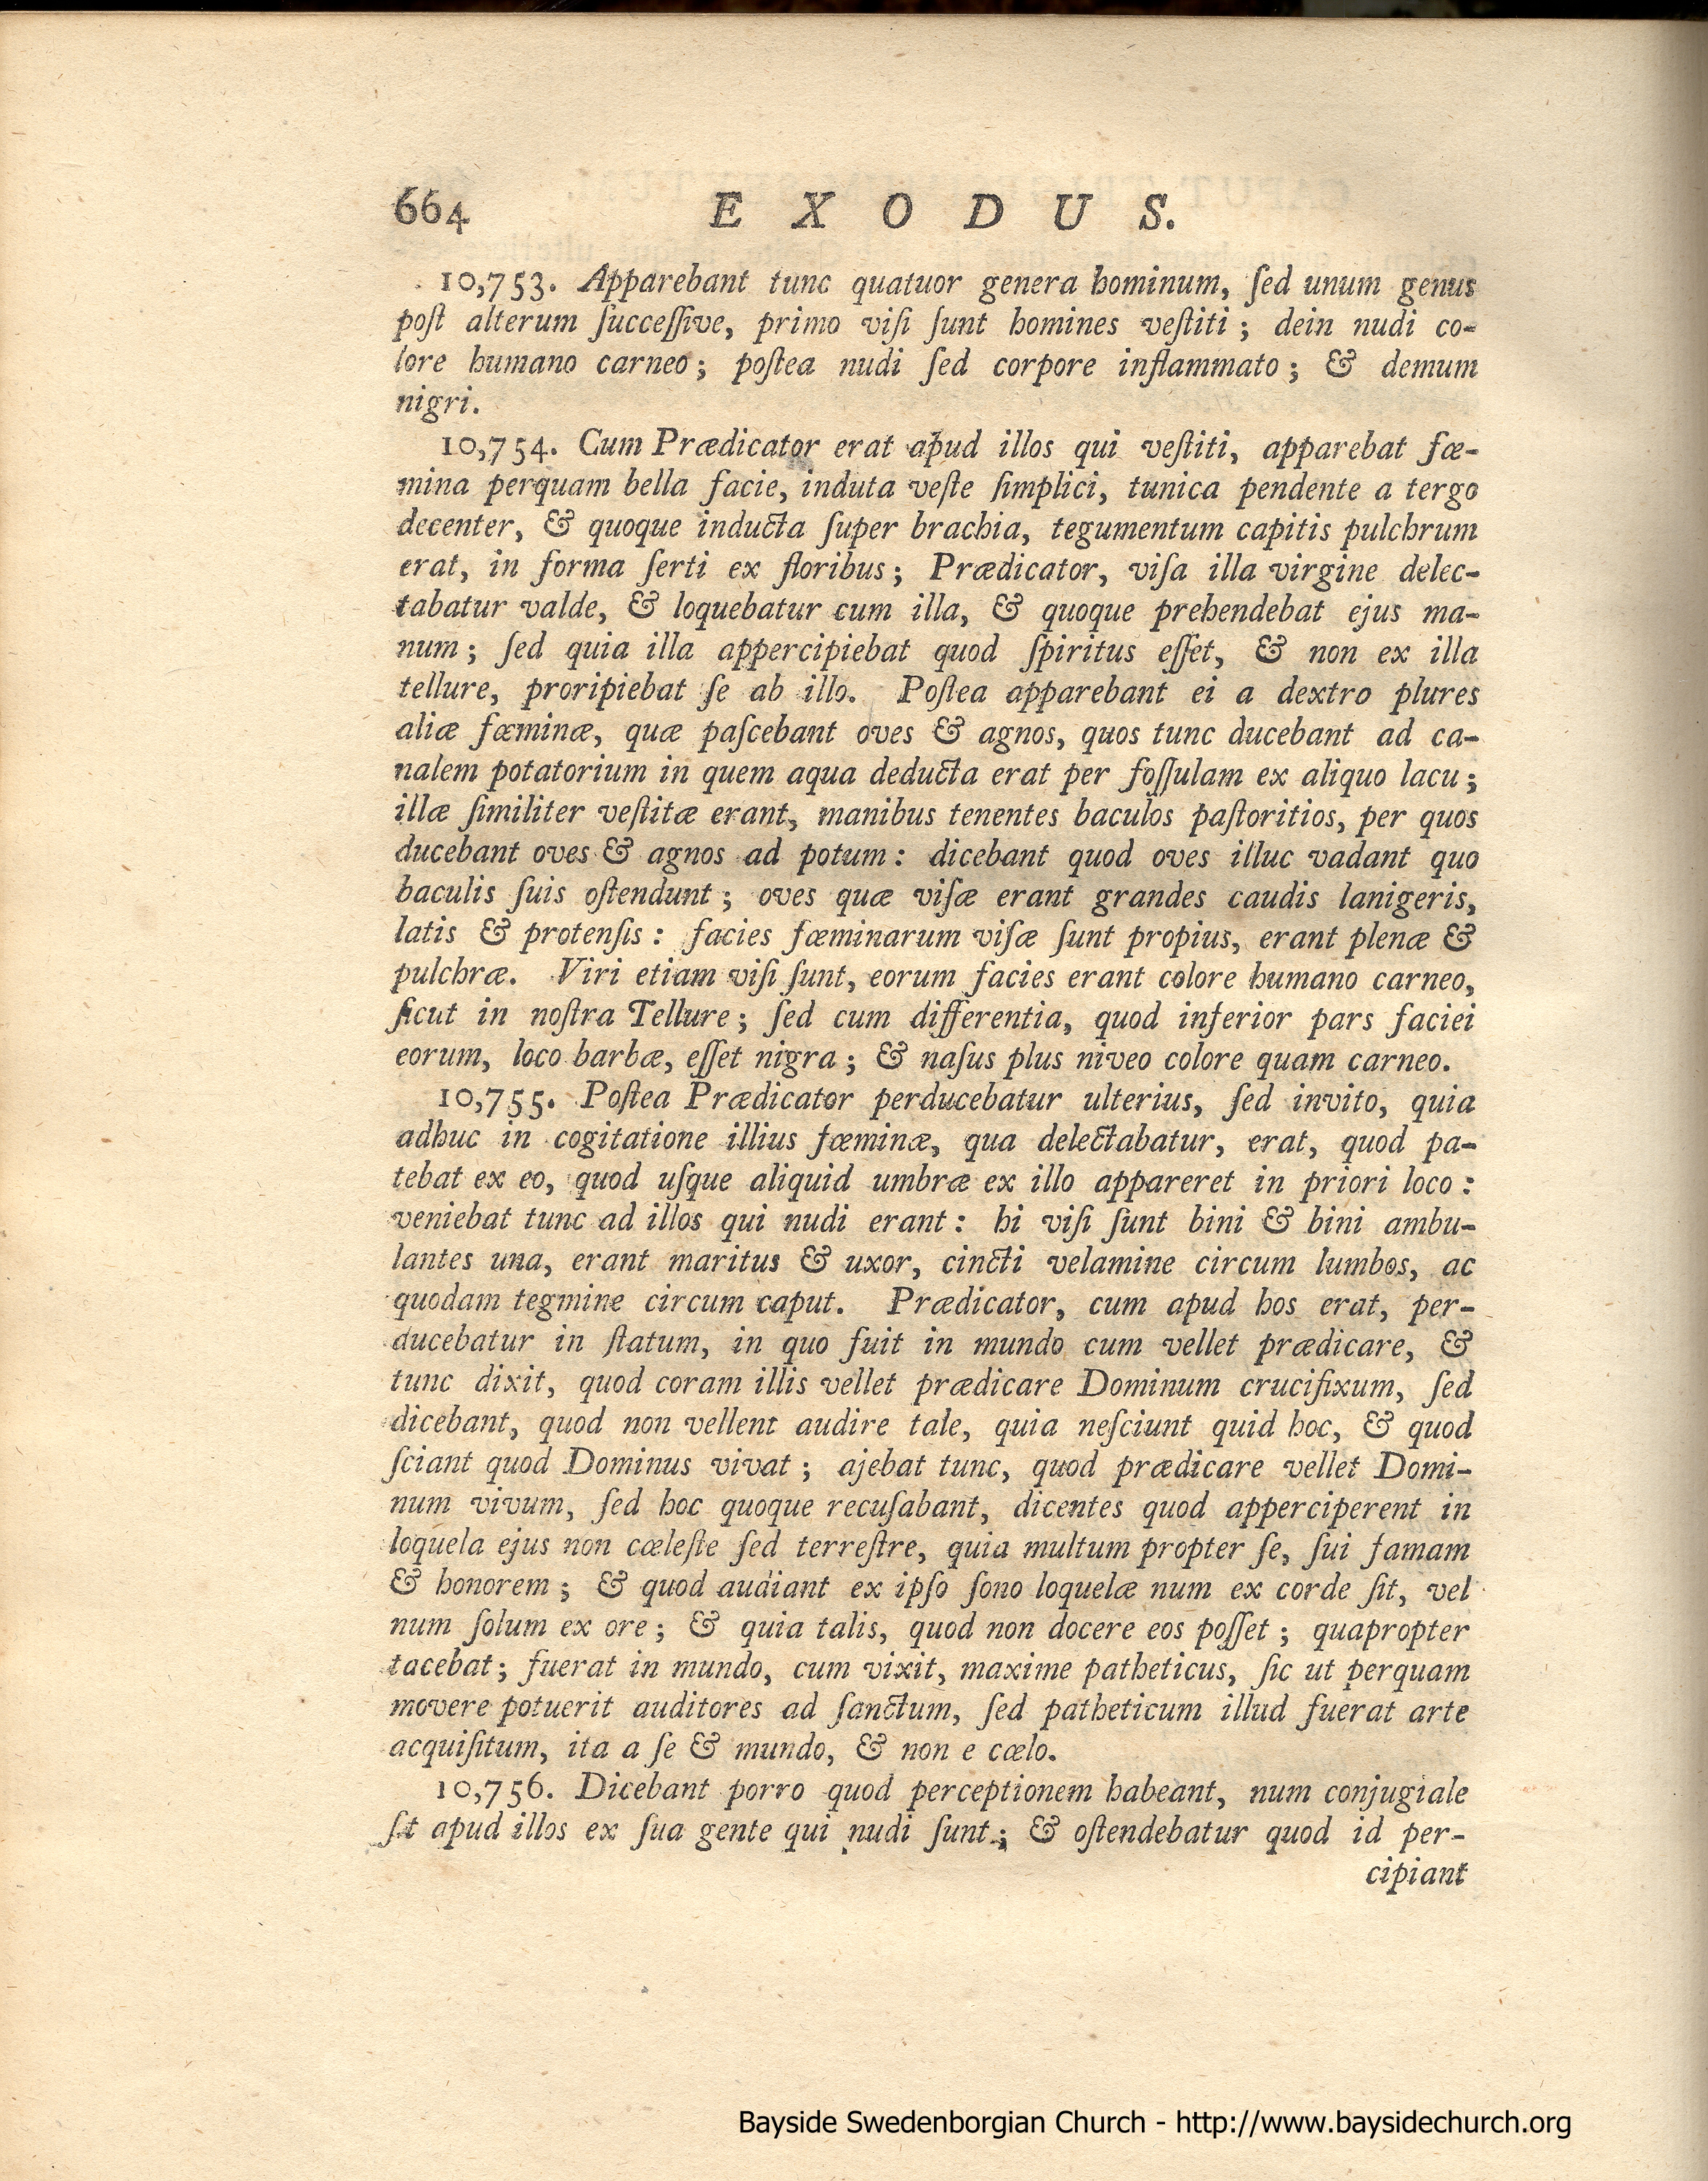 664 E X O D U S.
10,753. Apparebant tunc quatuor genera hominum, ſed unum genus
poſt alterum ſucceſſive, primo viſi ſunt homines veſtiti; dein nudi co-
lore humano carneo; poſtea nudi ſed corpore inflammato; & demum
nigri.
10,754. Cum Prædicator erat apud illos qui veſtiti, apparebat fœ-
mina perquam bella facie, induta veſte ſimplici, tunica pendente a tergo
decenter, & quoque inducta ſuper brachia, tegumentum capitis pulchrum
erat, in forma ſerti ex floribus; Prædicator, viſa illa virgine delec-
tabatur valde, & loquebatur cum illa, & quoque prehendebat ejus ma-
num; ſed quia illa appercipiebat quod ſpiritus eſſet, & non ex illa
tellure, proripiebat ſe ab illo. Poſtea apparebant ei a dextro plures
aliæ fœminæ, quæ paſcebant oves & agnos, quos tunc ducebant ad ca-
nalem potatorium in quem aqua deducta erat per foſſulam ex aliquo lacu;
illæ ſimiliter veſtitæ erant, manibus tenentes baculos paſtoritios, per quos
ducebant oves & agnos ad potum: dicebant quod oves illuc vadant quo
baculis ſuis oſtendunt; oves quæ viſæ erant grandes caudis lanigeris,
latis & protenſis: facies fœminarum viſæ ſunt propius, erant plenæ &
pulchræ. Viri etiam viſi ſunt, eorum facies erant colore humano carneo,
ſicut in noſtra Tellure; ſed cum differentia, quod inferior pars faciei
eorum, loco barbæ, eſſet nigra; & naſus plus niveo colore quam carneo.
10,755. Poſtea Prædicator perducebatur ulterius, ſed invito, quia
adhuc in cogitatione illius fœminæ, qua delectabatur, erat, quod pa-
tebat ex eo, quod uſque aliquid umbræ ex illo appareret in priori loco:
veniebat tunc ad illos qui nudi erant: hi viſi ſunt bini & bini ambu-
lantes una, erant maritus & uxor, cincti velamine circum lumbos, ac
quodam tegmine circum caput. Prædicator, cum apud hos erat, per-
ducebatur in ſtatum, in quo fuit in mundo cum vellet prædicare, &
tunc dixit, quod coram illis vellet prædicare Dominum crucifixum, ſed
dicebant, quod non vellent audire tale, quia neſciunt quid hoc, & quod
ſciant quod Dominus vivat; ajebat tunc, quod prædicare vellet Domi-
num vivum, ſed hoc quoque recuſabant, dicentes quod apperciperent in
loquela ejus non cœleſte ſed terreſtre, quia multum propter ſe, ſui famam
& honorem; & quod audiant ex ipſo ſono loquelæ num ex corde ſit, vel
num ſolum ex ore; & quia talis, quod non docere eos poſſet; quapropter
tacebat; fuerat in mundo, cum vixit, maxime patheticus, ſic ut perquam
movere potuerit auditores ad ſanctum, ſed patheticum illud fuerat arte
acquiſitum, ita a ſe & mundo, & non e cœlo.
10,756. Dicebant porro quod perceptionem habeant, num conjugiale
ſit apud illos ex ſua gente qui nudi ſunt; & oſtendebatur quod id per-
cipiant
Bayside Swedenborgian Church - http://www.baysidechurch.org